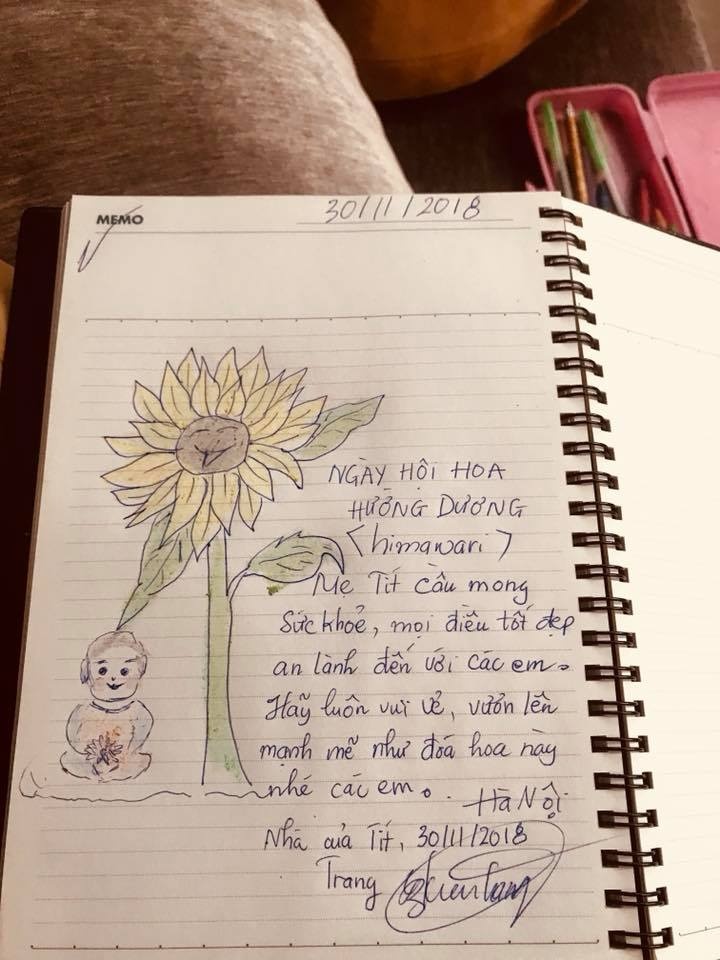 MEMO
30/11/2018
NGÀY HỘI HOA
HƯỚNG DƯƠNG
<himawari>
Mẹ Tít cầu mong
Sức khoẻ, mọi điều tốt đẹp
an lành đến với các em.
Hãy luôn vui vẻ, vươn lên
mạnh mẽ như đoá hoa này
nhé các em.
Hà Nội
Nhà của Tít, 30/11/2018
Trang